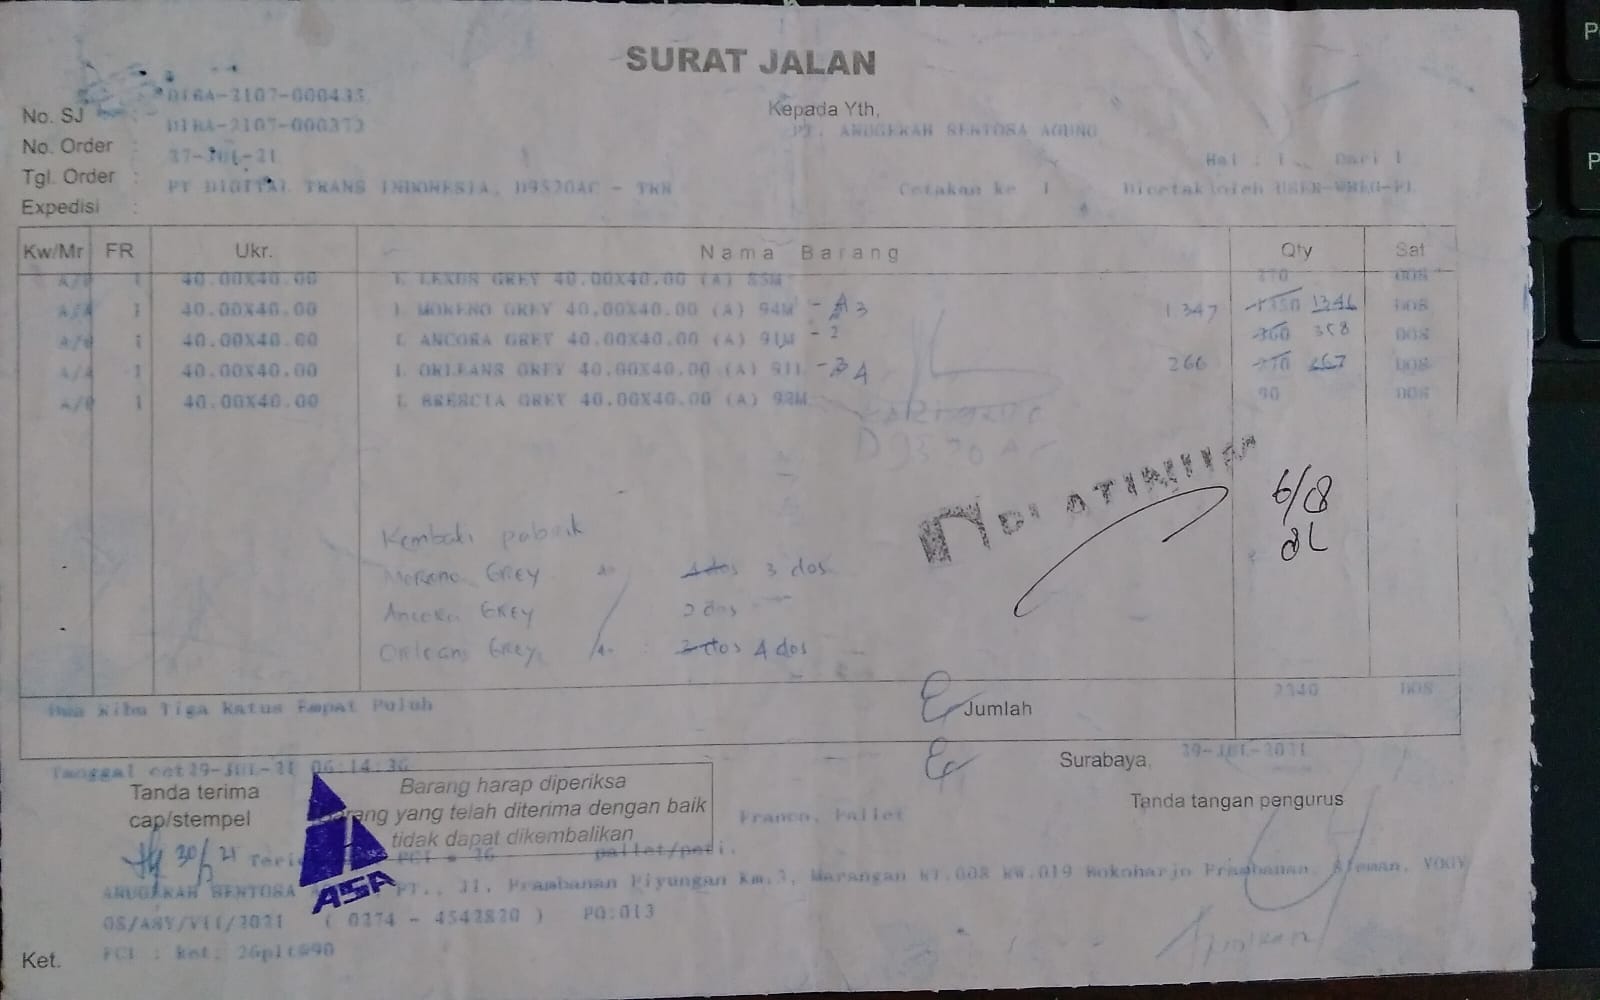 SURAT JALAN
No. SJ : DIBA-2107-000435
No. Order : DIBA-2107-000372
Tgl. Order : 27-JUL-21
Expedisi : PT DIGITAL TRANS INDONESIA, D9520AC - TRN
Kepada Yth,
PT. ANUGERAH SENTOSA AGUNG
Hal : 1 Dari 1
Cetakan ke 1 Dicetak oleh
Kw/Mr FR Ukr. Nama Barang Qty Sat
1 40.00X40.00 I. LEXUS GREY 40.00X40.00 (A) 270 DOS
A/A 1 40.00X40.00 I. MORENO GREY 40.00X40.00 (A) 94M - 3 1.347 1350 1346 DOS
1 40.00X40.00 I. ANCORA GREY 40.00X40.00 (A) 91M - 2 360 358 DOS
A/A 1 40.00X40.00 I. ORLEANS GREY 40.00X40.00 (A) - 3 4 266 270 267 DOS
1 40.00X40.00 I. BRESCIA GREY 40.00X40.00 (A) 90 DOS
D9520AC
PLATINUM
6/8
Kembali pabrik
Moreno GREY 4 dos 3 dos
Ancora GREY 2 dos
Orleans Grey 3 dos 4 dos
Dua Ribu Tiga Ratus Empat Puluh
Jumlah 2340 DOS
Tanggal cet 29-JUL-21 06:14:36
Surabaya, 29-JUL-2021
Tanda terima
cap/stempel
Barang harap diperiksa
Barang yang telah diterima dengan baik
tidak dapat dikembalikan
Franco, Pallet
Tanda tangan pengurus
30/ 21
pallet/peti.
ASA
ANUGERAH SENTOSA PT., Jl. Prambanan Piyungan Km.3, Marangan RT.008 RW.019 Bokoharjo Prambanan, Sleman, YOGY
08/ASY/VII/2021 ( 0274 - 4542820 ) PO:013
Ket. FCI : ket: 26plt@90